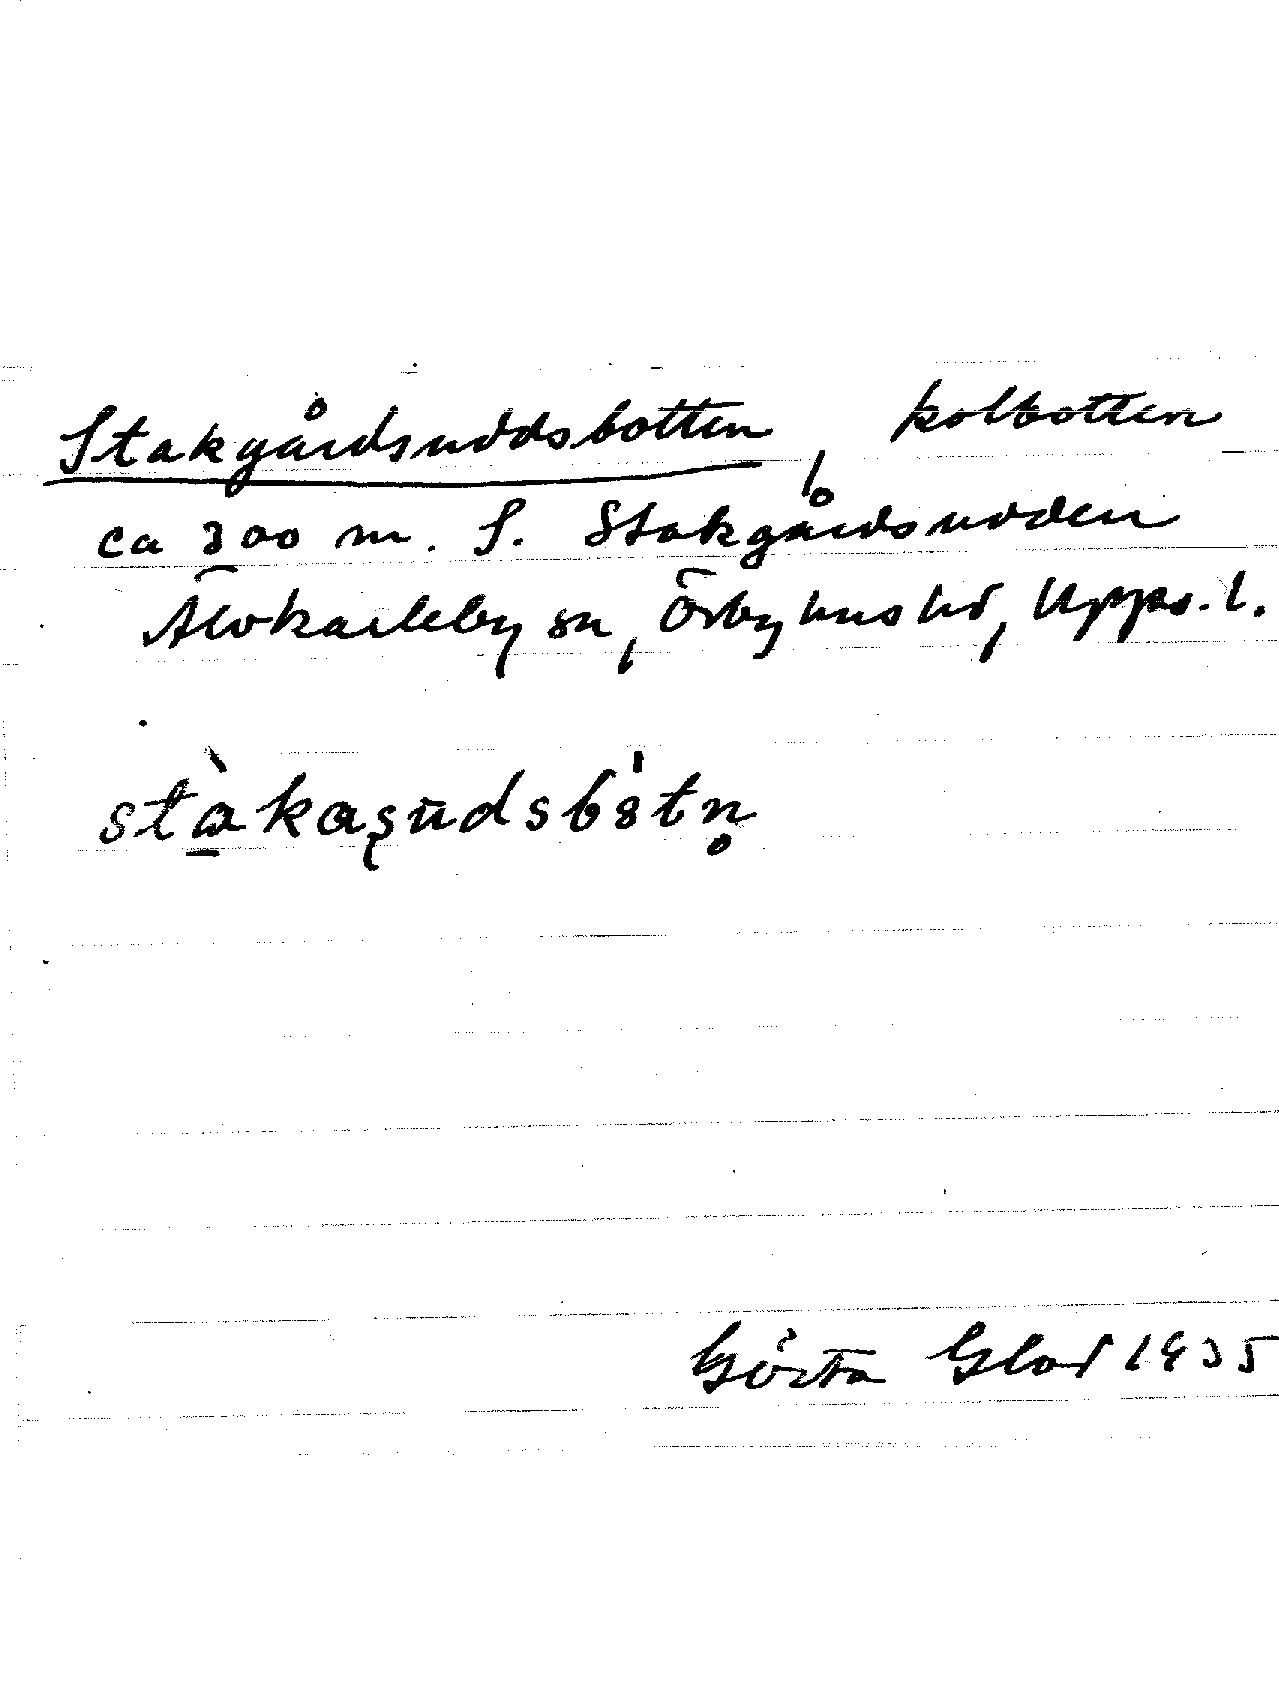 Stakgårdsuddsbotten, kolbotten
ca 300 m. S. Stakgårdsudden
Älvkarleby sn, Örbyhus hd, Upps. l.
stàkaşūdsbòtn̥
Gösta Glad 1935